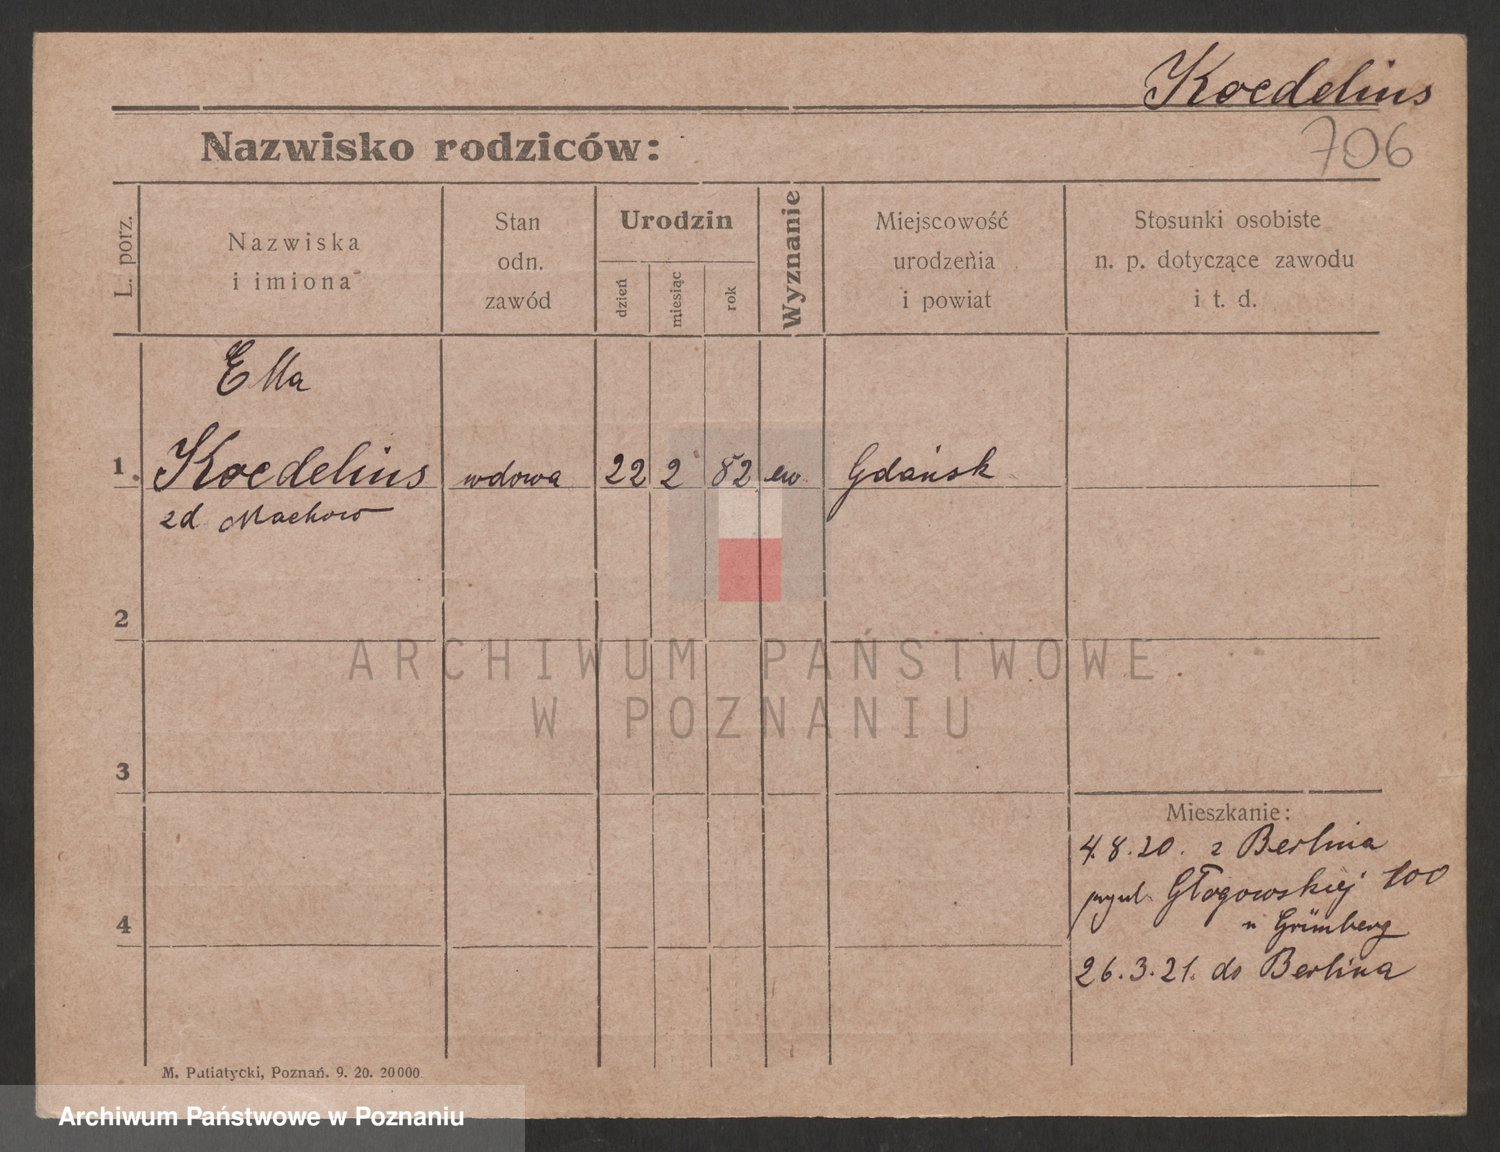 Koedelius
706
Nazwisko rodziców:
L. porz.
Nazwiska
i imiona
Stan
odn.
zawód
Urodzin
dzień
miesiąc
rok
Wyznanie
Miejscowość
urodzenia
i powiat
Stosunki osobiste
n. p. dotyczące zawodu
i t. d.
Ella
1 Koedelius wdowa 22 2 82 ew. Gdańsk
zd Machow
2
ARCHIWUM PAŃSTWOWE
W POZNANIU
3
Mieszkanie:
4.8.20. z Berlina
Głogowskiej 100
4
u Grünberg
26.3.21. do Berlina
M. Putiatycki, Poznań. 9. 20. 20000.
Archiwum Państwowe w Poznaniu